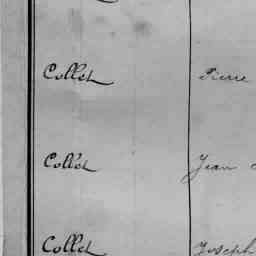 Collet Pierre
Collet Jean
Collet Joseph